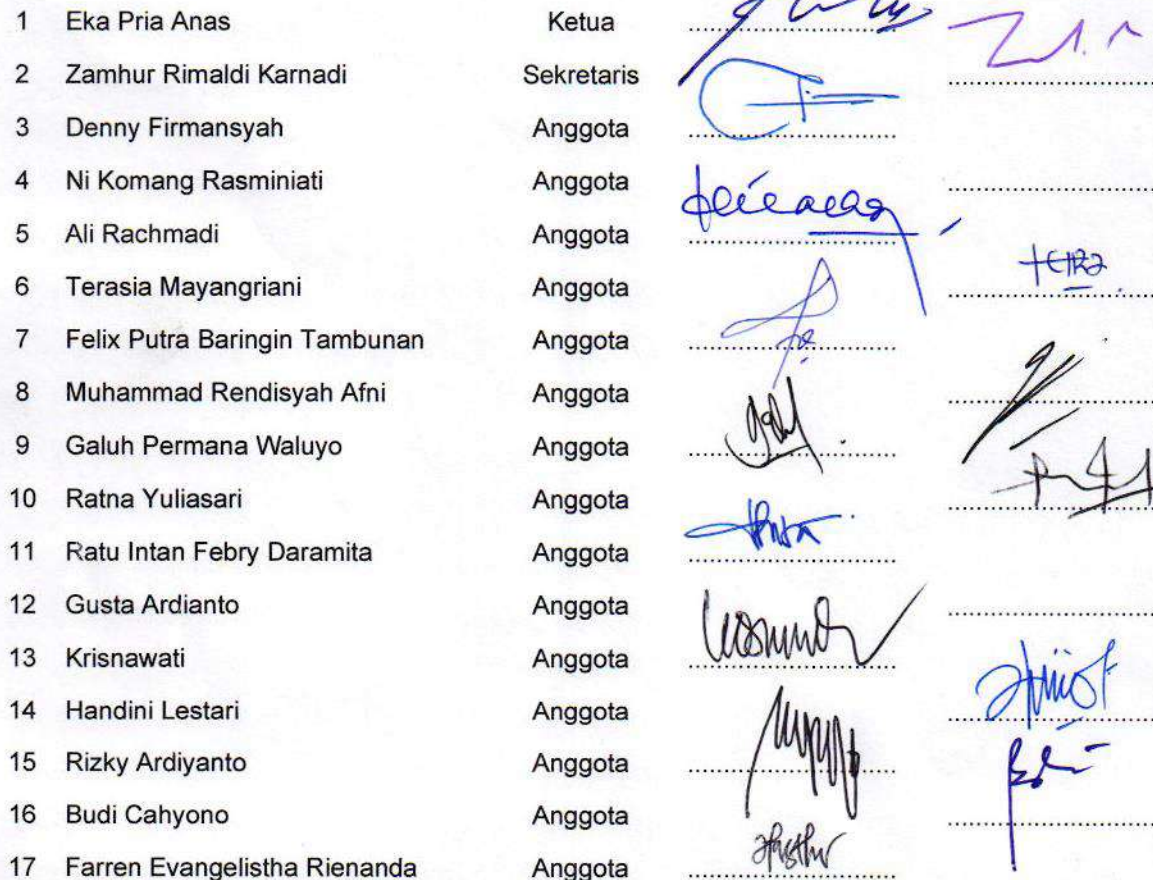 1 Eka Pria Anas Ketua
2 Zamhur Rimaldi Karnadi Sekretaris
3 Denny Firmansyah Anggota
4 Ni Komang Rasminiati Anggota
5 Ali Rachmadi Anggota
6 Terasia Mayangriani Anggota
7 Felix Putra Baringin Tambunan Anggota
8 Muhammad Rendisyah Afni Anggota
9 Galuh Permana Waluyo Anggota
10 Ratna Yuliasari Anggota
11 Ratu Intan Febry Daramita Anggota
12 Gusta Ardianto Anggota
13 Krisnawati Anggota
14 Handini Lestari Anggota
15 Rizky Ardiyanto Anggota
16 Budi Cahyono Anggota
17 Farren Evangelistha Rienanda Anggota